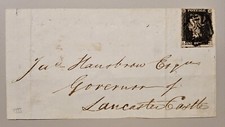 POSTAGE
Jas Hansbrow Esqr
Governor of
Lancaster Castle